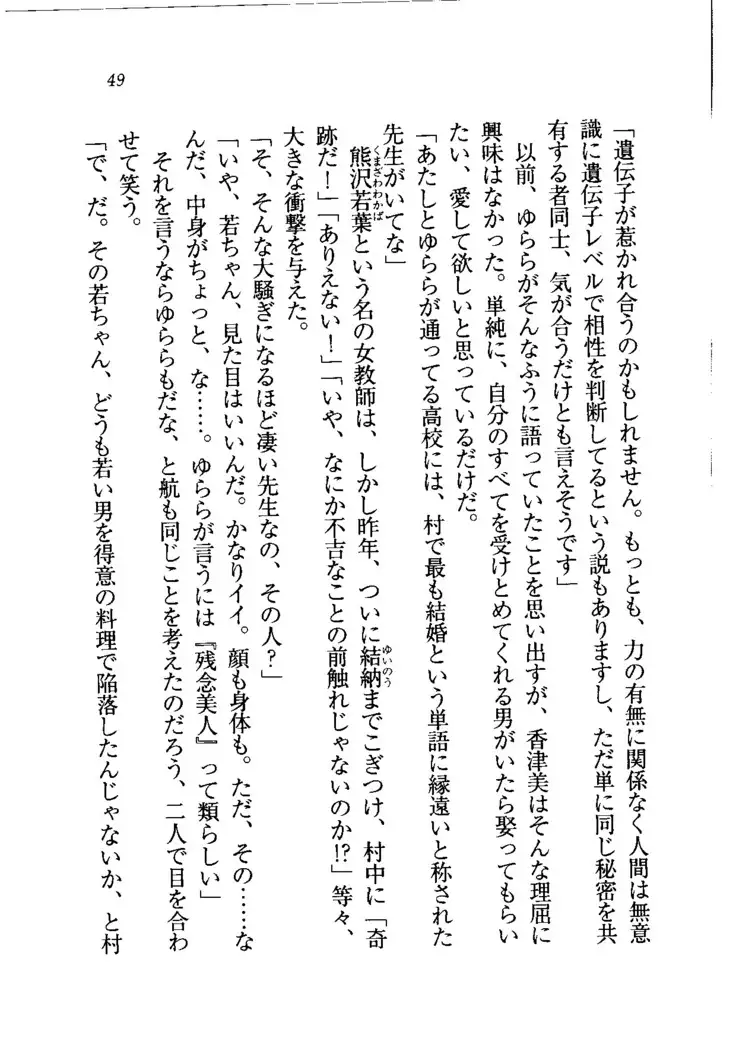 49
「遺伝子が惹かれ合うのかもしれません。もっとも、力の有無に関係なく人間は無意
識に遺伝子レベルで相性を判断してるという説もありますし、ただ単に同じ秘密を共
有する者同士、気が合うだけとも言えそうです」
以前、ゆららがそんなふうに語っていたことを思い出すが、香津美はそんな理屈に
興味はなかった。単純に、自分のすべてを受けとめてくれる男がいたら娶ってもらい
たい、愛して欲しいと思っているだけだ。
「あたしとゆららが通ってる高校には、村で最も結婚という単語に縁遠いと称された
先生がいてな」
熊沢若葉という名の女教師は、しかし昨年、ついに結納までこぎつけ、村中に「奇
くまざわわかば
ゆいのう
跡だ！」「ありえない！」「いや、なにか不吉なことの前触れじゃないのか!?」等々、
大きな衝撃を与えた。
「そ、そんな大騒ぎになるほど凄い先生なの、その人？」
「いや、若ちゃん、見た目はいいんだ。かなりイイ。顔も身体も。ただ、その……な
んだ、中身がちょっと、な……。ゆららが言うには『残念美人』って類らしい」
それを言うならゆららもだな、と航も同じことを考えたのだろう、二人で目を合わ
せて笑う。
「で、だ。その若ちゃん、どうも若い男を得意の料理で陥落したんじゃないか、と村